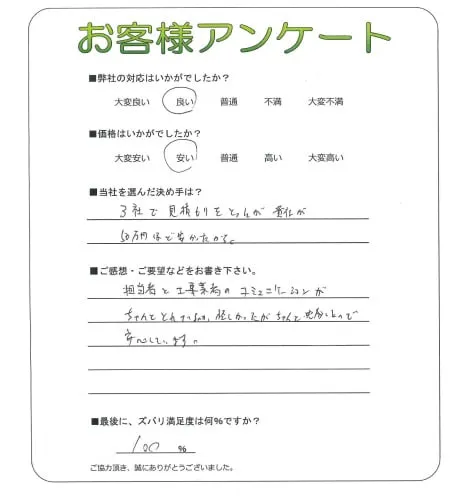 お客様アンケート
■弊社の対応はいかがでしたか？
大変良い 良い 普通 不満 大変不満
■価格はいかがでしたか？
大変安い 安い 普通 高い 大変高い
■当社を選んだ決め手は？
3社で見積もりをとったが 貴社が
50万円ほど安かったから。
■ご感想・ご要望などをお書き下さい。
担当者と工事業者のコミュニケーションが
ちゃんと とれているか 怪しかったが ちゃんと
安心しています。
■最後に、ズバリ満足度は何%ですか？
100 %
ご協力頂き、誠にありがとうございました。